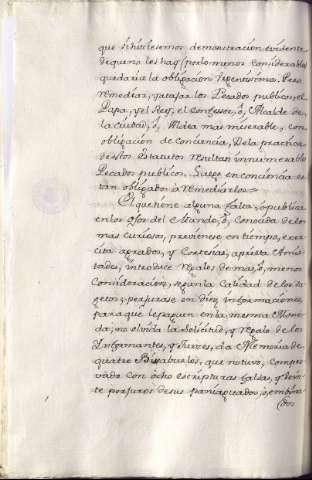 que si hiciesemos demostracion evidente
de que no les hay (por lo menos considerables
quedaria la obligacion
remediar, y atajar los Pecados publicos, el
Papa, y el Rey, el confessor, ô, Alcalde de
la Ciudad, ô, Aldea mas miserable, con
obligacion de conciencia, De la practica
destos Estatutos resultan innumerables
Pecados publicos. Luego en conciencia es
tan obligados à remediarlos=
El que tiene alguna falta, ò publica
en los ojos del Mundo, ô, conocida de los
mas curiosos, previenese en tiempo, exer
cita agrados, y Cortesias, aprieta Amis
tades, introduce regalos de mas, ô, menos
Consideracion, segun la Calidad de los su
getos; perjurase en diez informaciones
para que le paguen en la mesma Mone
da; no olvida la solicitud, y regalo de los
Informantes, y Jueces, da Memoria de
quatro Bisabuelos, que no tuvo, compro
vada con ocho escripturas falsas, y
te perjuros de sus paniaguados, ô, embiza
dos